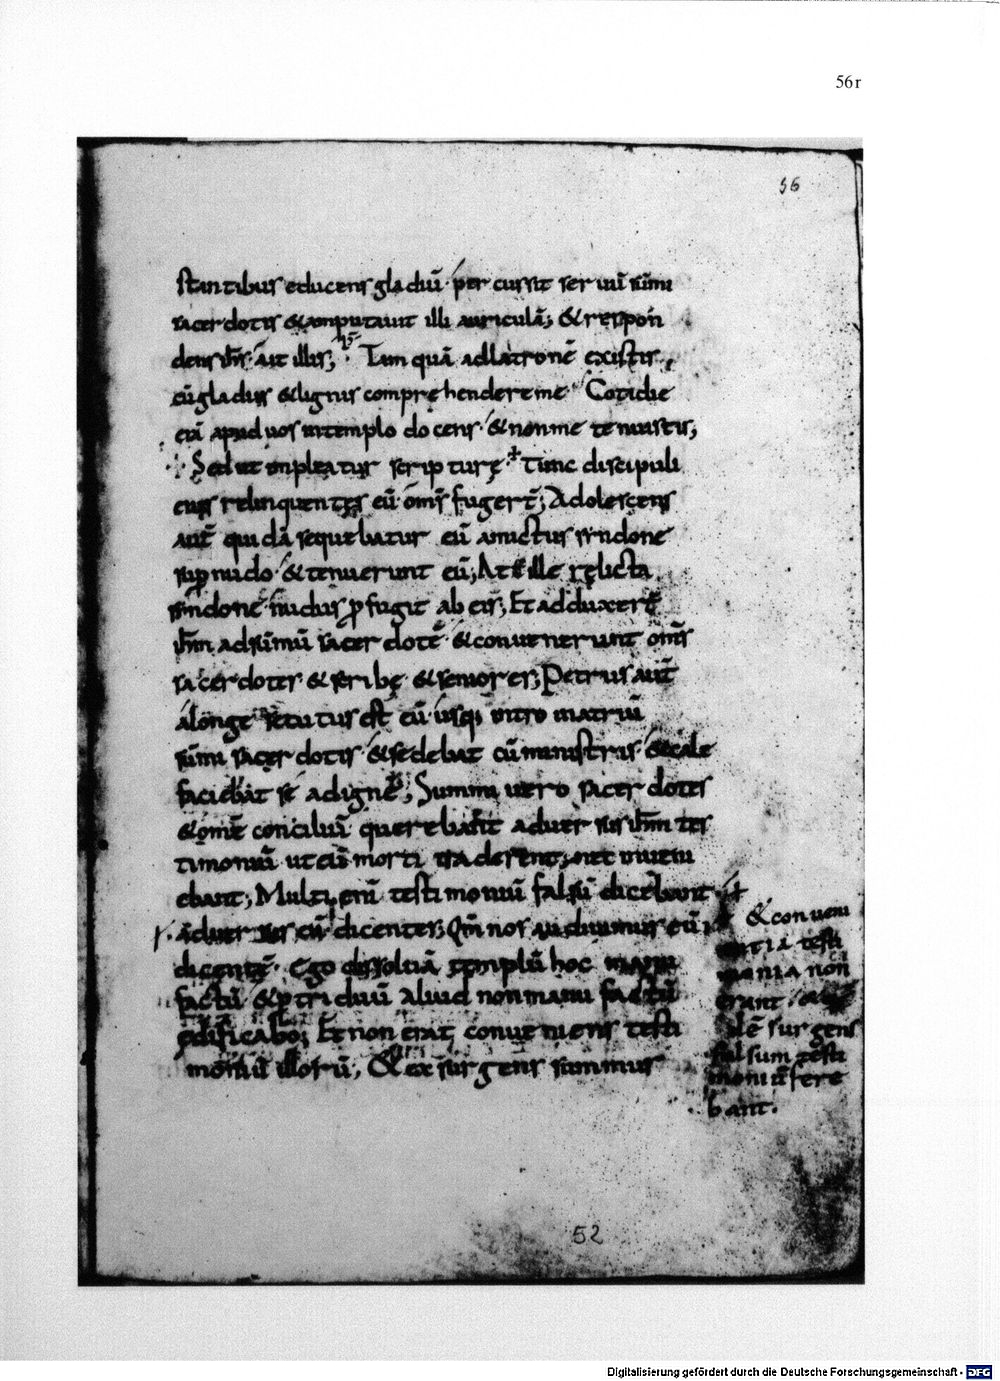 56r
56
stantibus educens gladiū· percussit seruū sūmi
sacerdotis & amputauit illi auriculā; & respon
dens ih̄s· ait illis; Tamquā ad latronē existis
cū gladiis & lignis comprehendere me· Cotidie
erā apud uos in templo docens· & non me tenuistis;
Sed ut impleatur scripturę· Tunc discipuli
eius relinquentes eū· om̄s fugert̄; Adolescens
aut̄ quidā sequebatur eū amictus syndone
sup nudo· & tenuerunt eū; At ille relicta
sindone· nudus ꝓfugit ab eis; Et adduxert̄
ih̄m ad sūmū sacerdotē· & conuenerunt om̄s
sacerdotes & scribę & seniores; Petrus aut̄
a longe secutus est eū· usq; intro in atriū
sūmi sacerdotis· & sedebat cū ministris· & cale
faciebat se ad ignē; Summi uero sacerdotes
& om̄e conciliū querebant aduersus ih̄m tes
timoniū ut eū morti traderent; nec inueni
ebant; Multi enī testimoniū falsū dicebant
aduersus eū dicentes; Qm̄ nos audiuimus eū
dicentē· Ego dissoluā templū hoc manu
factū & p triduū aliud non manu factū
ędificabo; Et non erat conueniens testi
moniū illorū; & exsurgens summus
& conueni
entia testi
monia non
erant·
surgens
falsum testi
moniū fere
bant·
52
Digitalisierung gefördert durch die Deutsche Forschungsgemeinschaft - DFG